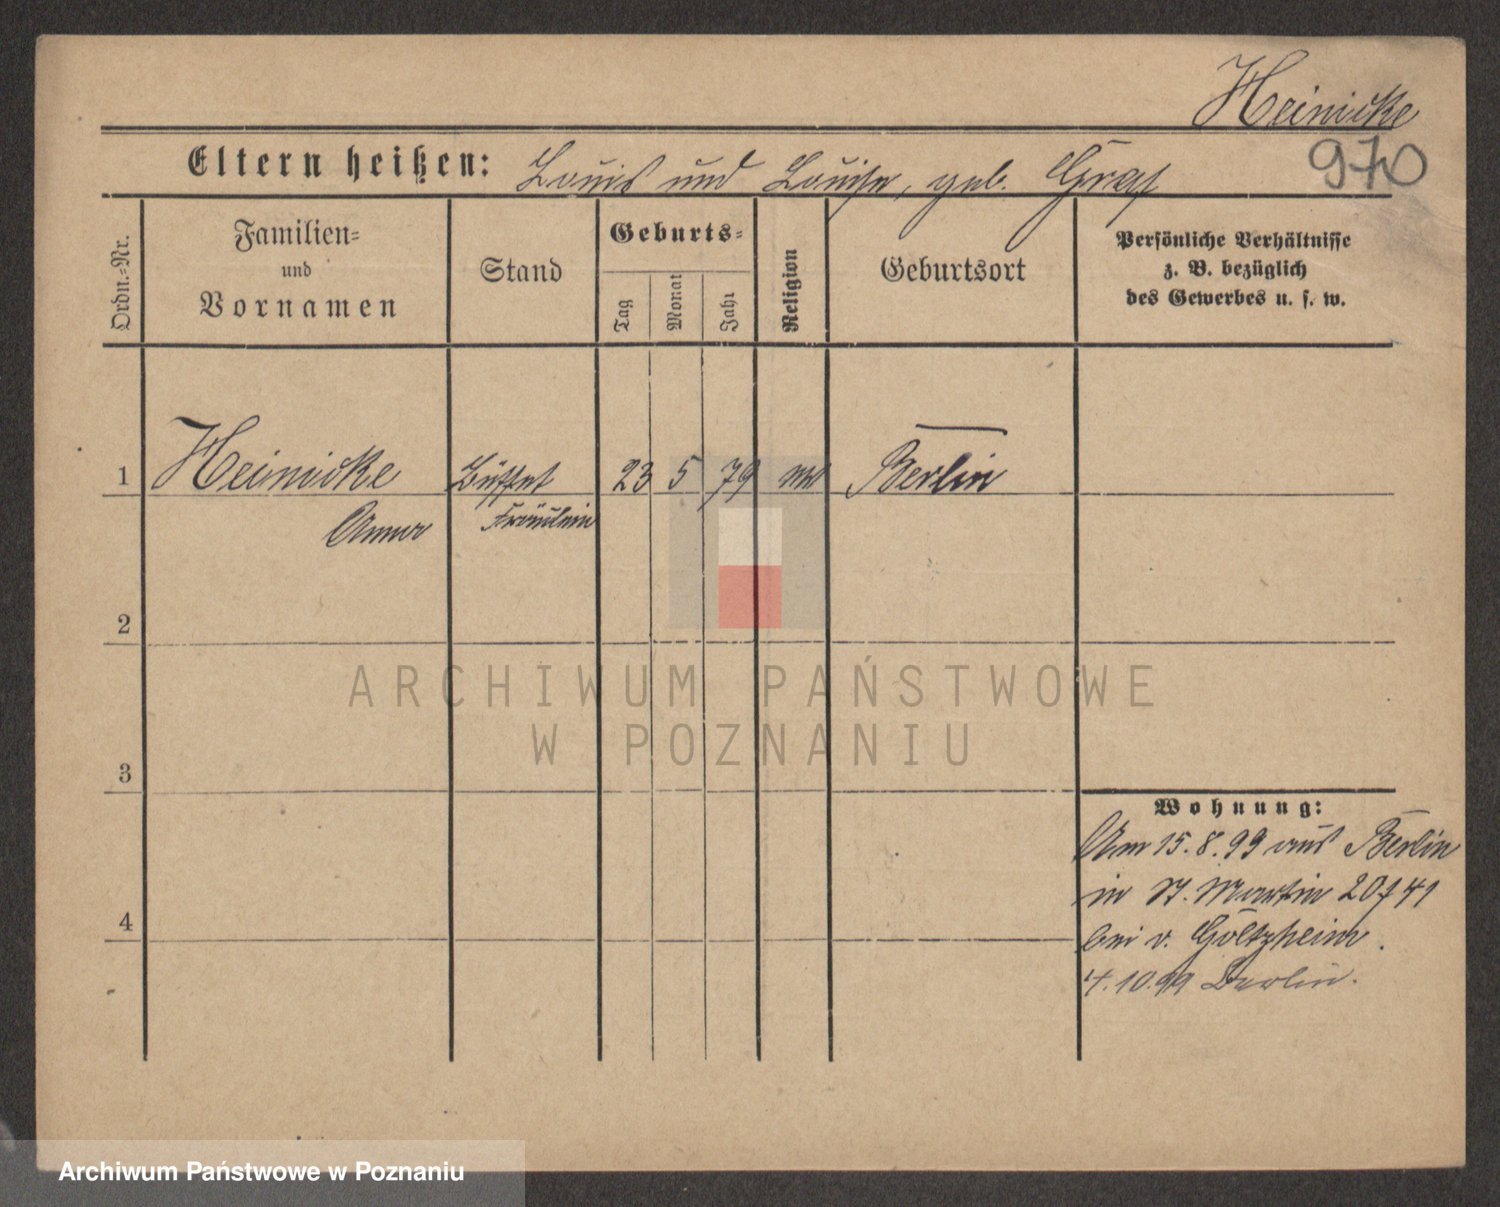 Heinicke
970
Eltern heißen: Louis und Louise, geb. Graf
Ordn.=Nr.
Familien=
und
Vornamen
Stand
Geburts=
Tag
Monat
Jahr
Religion
Geburtsort
Persönliche Verhältnisse
z. B. bezüglich
des Gewerbes u. s. w.
1 Heinicke Büffet 23 5 79 Berlin
Anna Fräulein
2
3
4
Wohnung:
Am 15.8.99 aus Berlin
in St. Martin 20/41
bei v. Goltzheim.
4.10.99 Berlin.
ARCHIWUM PAŃSTWOWE
W POZNANIU
Archiwum Państwowe w Poznaniu